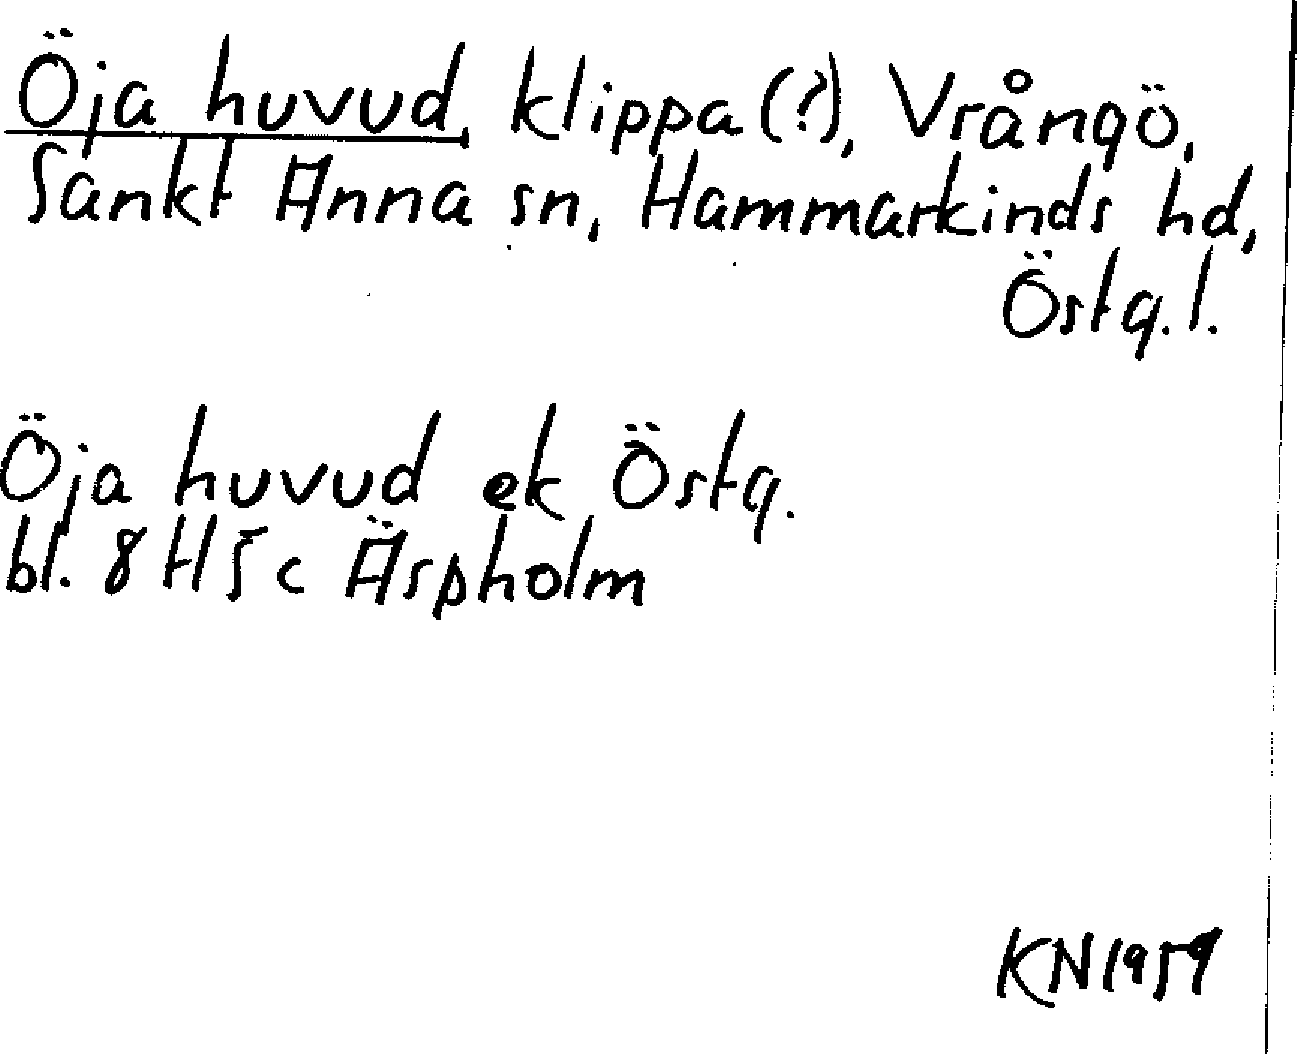 Öja huvud, klippa (?), Vrångö,
Sankt Anna sn, Hammarkinds hd,
Östg. l.
Öja huvud ek Östg.
bl. 8 H5c Äspholm
KN 1959